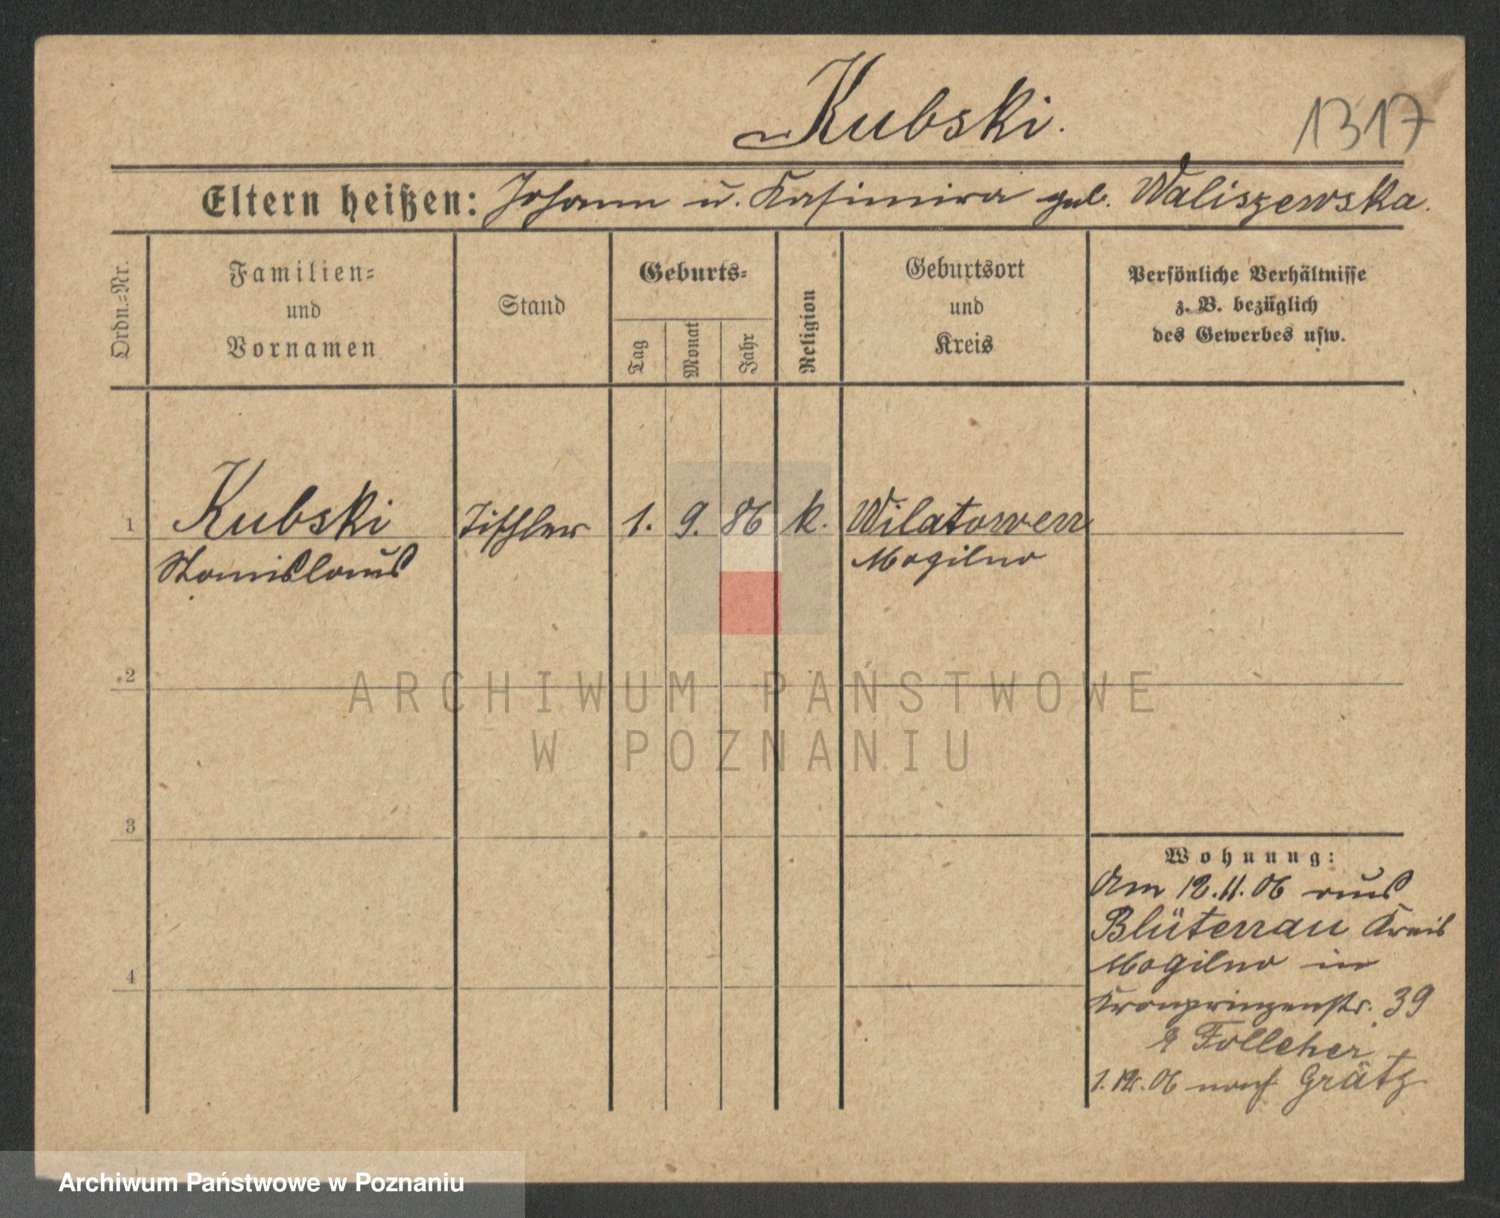 Kubski.
1317
Eltern heißen: Johann u. Kasimira geb. Waliszewska.
Ordn.=Nr.
Familien=
und
Vornamen
Stand
Geburts=
Tag
Monat
Jahr
Religion
Geburtsort
und
Kreis
Persönliche Verhältnisse
z. B. bezüglich
des Gewerbes usw.
1 Kubski Tischler 1. 9. 86 k. Wilatowen
Stanislaus Mogilno
2
ARCHIWUM PAŃSTWOWE
W POZNANIU
3
Wohnung:
Am 12.11.06 aus
Blütenau Kreis
4 Mogilno in
Kronprinzenstr. 39
Folleher
1.12.06 nach Grätz
Archiwum Państwowe w Poznaniu